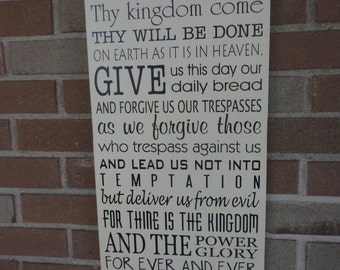 Thy kingdom come
THY WILL BE DONE
ON EARTH AS IT IS IN HEAVEN.
GIVE us this day our
daily bread
AND FORGIVE US OUR TRESPASSES
as we forgive those
who trespass against us
AND LEAD US NOT INTO
TEMPTATION
but deliver us from evil
FOR THINE IS THE KINGDOM
AND THE POWER
GLORY
FOR EVER AND EVER